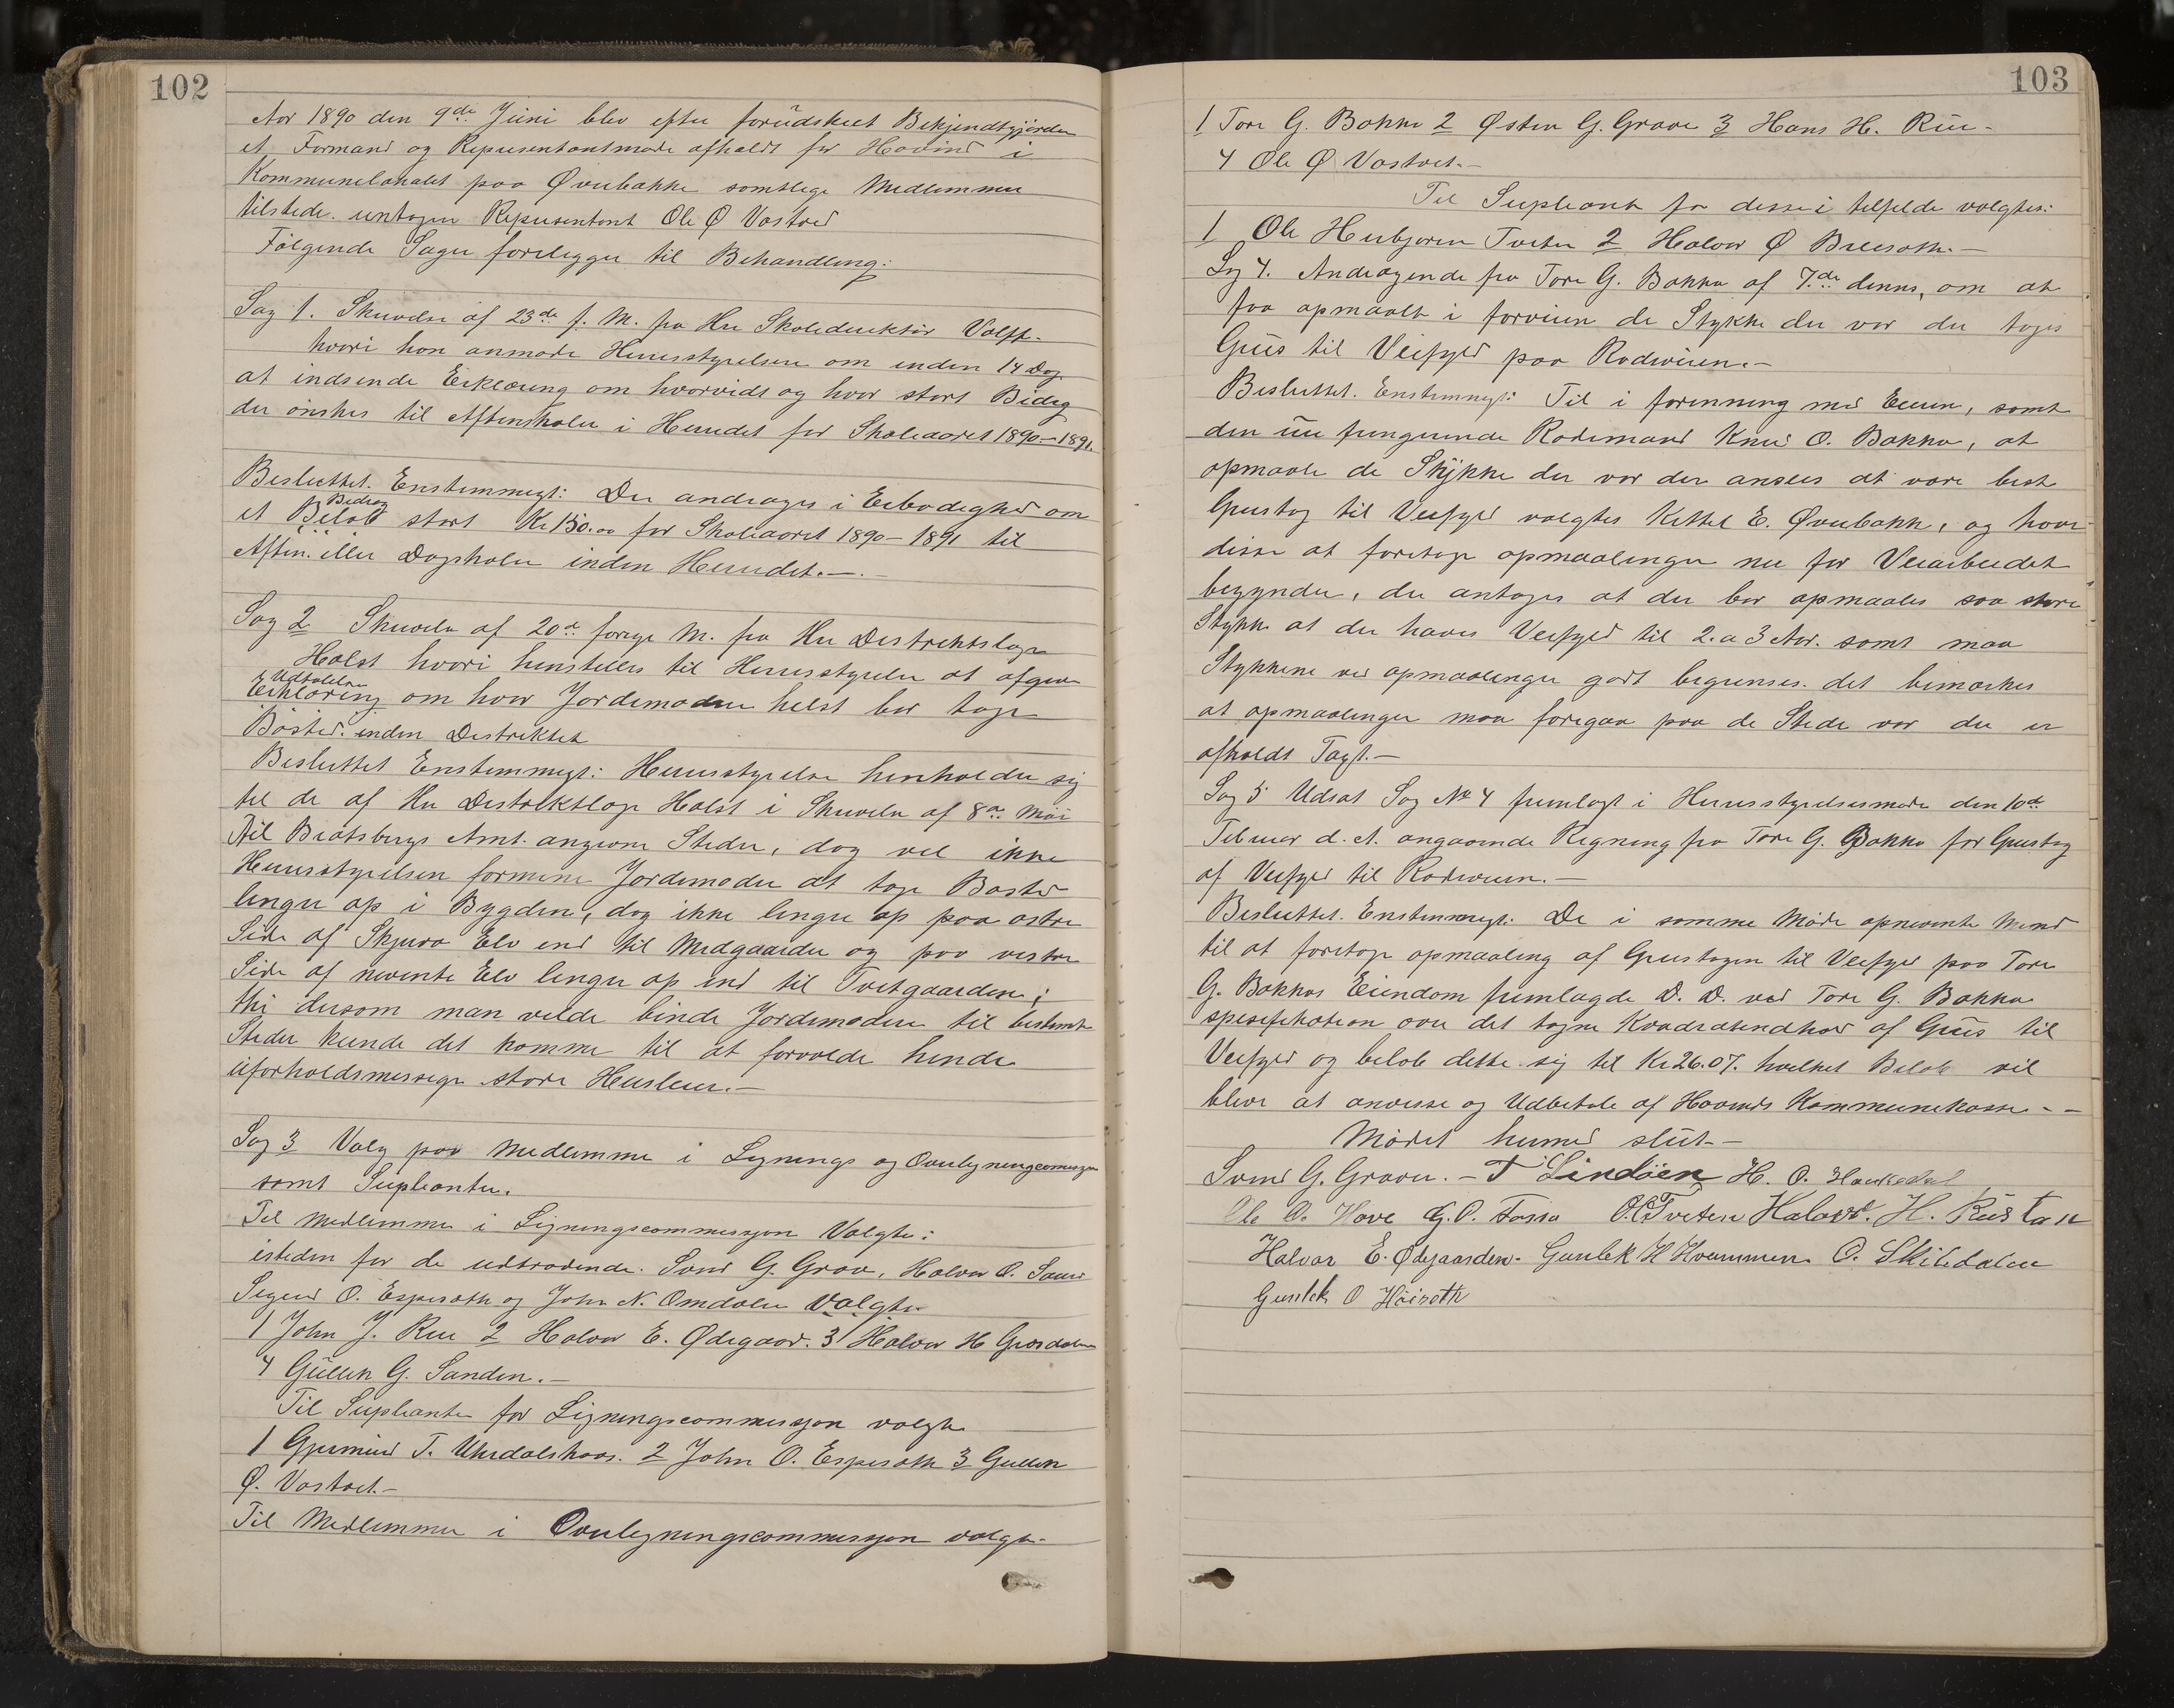 102
Aar 1890 den 9de Juni blev efter forudskeet Bekjendtgjørelse
et Formand og Representantmøde afholdt for Hovind i
Kommunelokalet paa Øverbakke samtlige Medlemmer
tilstede. untagen Representant Ole Ø Vastveit
Følgende Sager forelegger til Behandling:
Sag 1. Skrivelse af 23de f. M. fra Hr Skoledirektør Valft.
hvori han anmode Herresstyrelsen om inden 14 Dage
at indsende Erklæring om hvorvidt og hvor stort Bidrag
der ønskes til Aftenskoler i Herredet for Skoleaaret 1890–1891.
Besluttet. Enstemmigt: Der andrages i Erbødighed om
Bedrag
et Beløb stort Kr 150.00 for Skoleaaret 1890–1891 til
Aften. eller Dagskoler inden Herredet.—
Sag 2 Skrivelse af 20de forrige M. fra Hr Distriktslæge
Holst hvori henstilles til Herresstyrelsen at afgive
Udtalelse
Erklæring om hvor Jordemoderen helst bør tage
Bosted inden Distriktet
Besluttet Enstemmigt: Herresstyrelsen henholder sig
til de af Hr Distriktslæge Holst i Skrivelse af 8de Mai
til Bratsbergs Amt. angivne Steder, dog vil ikke
Herresstyrelsen formene Jordemoder at tage Bosted
lengre op i Bygden, dog ikke lengre op paa østre
Side af Skjerva Elv end til Midgaarden og paa vestre
Side af nevnte Elv lengre op end til Tveitgaarden;
thi dersom man vilde binde Jordemoderen til bestemte
Steder kunde det komme til at forvolde hende
uforholdsmessige store Husleier.—
Sag 3 Valg paa Medlemmer i Lignings og Overligningcommisjon
samt Supleanter.
Til Medlemmer i Ligningscommisjon Valgtes:
isteden for de udtrædende. Svend G. Grave, Halvor O. Saure
Sigurd O. Esperoth og John N. Omdalen Valgtes
1 John J. Rue 2 Halvor E. Ødegaard. 3 Halvor H Grøsdalen
4 Gullek G. Sanden.—
Til Supleanter for Ligningscommisjon valgtes
1 Gjermund T. Uhrdalskaas. 2 John O. Esperoth 3 Gullek
Ø. Vastveit.—
Til Medlemmer i Overligningscommisjon valgtes
103
1 Tore G. Bakka 2 Østen G. Grave 3 Hans H. Rue—
4 Ole Ø Vastveit.—
Til Supleant for disse i tilfelde valgtes:
1 Ole Herbjørnsen Tveten 2 Halvor Ø Bleesoth.—
Sag 4. Andragende fra Tore G. Bakka af 7de dennes, om at
faa opmaalt i forveien de Stykker der var der tages
Grus til Veifyld paa Rodeveien.—
Besluttet. Enstemmigt: Til i forenning med Eieren, samt
den nu fungerende Rodemand Knud O. Bakka, at
opmaale de Stykker der var der ansees at være best
Grustag til Veifyld valgtes Kittel E. Øverbakk, og haver
disse at foretage opmaalinger nu før Veiarbeidet
begynder, der antages at der bør opmaales saa store
Stykker at der haves Veifyld til 2. a 3 Aar. samt maa
Stykkene ved opmaalinger godt begrenses. det bemerkes
at opmaalinger maa foregaa paa de Steder var der er
afholdt Taxt.—
Sag 5 Udsat Sag No 4 fremlagt i Herresstyrelsesmøde den 10de
Februar d. A. angaaende Regning fra Tore G. Bakka for Grustag
af Veifyld til Rodeveien.—
Besluttet. Enstemmigt: De i samme Møde opnevnte Mend
til at foretage opmaaling af Grustagen til Veifyld paa Tore
G. Bakkas Eiendom fremlagde D. D. ved Tore G. Bakka
spesefikation over det tagne Kvadratindhold af Grus til
Veifyld og beløb dette sig til Kr 26.07. hvilket Beløb vil
blive at anvise og Udbetale af Hovinds Kommunekasse.—
Mødet hermed slut.—
Svend G. Graver.— T Lindöen H. O. Haukedal
Ole O. Hove G. O. Fossa O. C. Tveten Halvor. H. Rustan
Halvor E. Ødegaarden. Gunlek H Hvammen O. Skibdalen
Gunlek O Höiseth